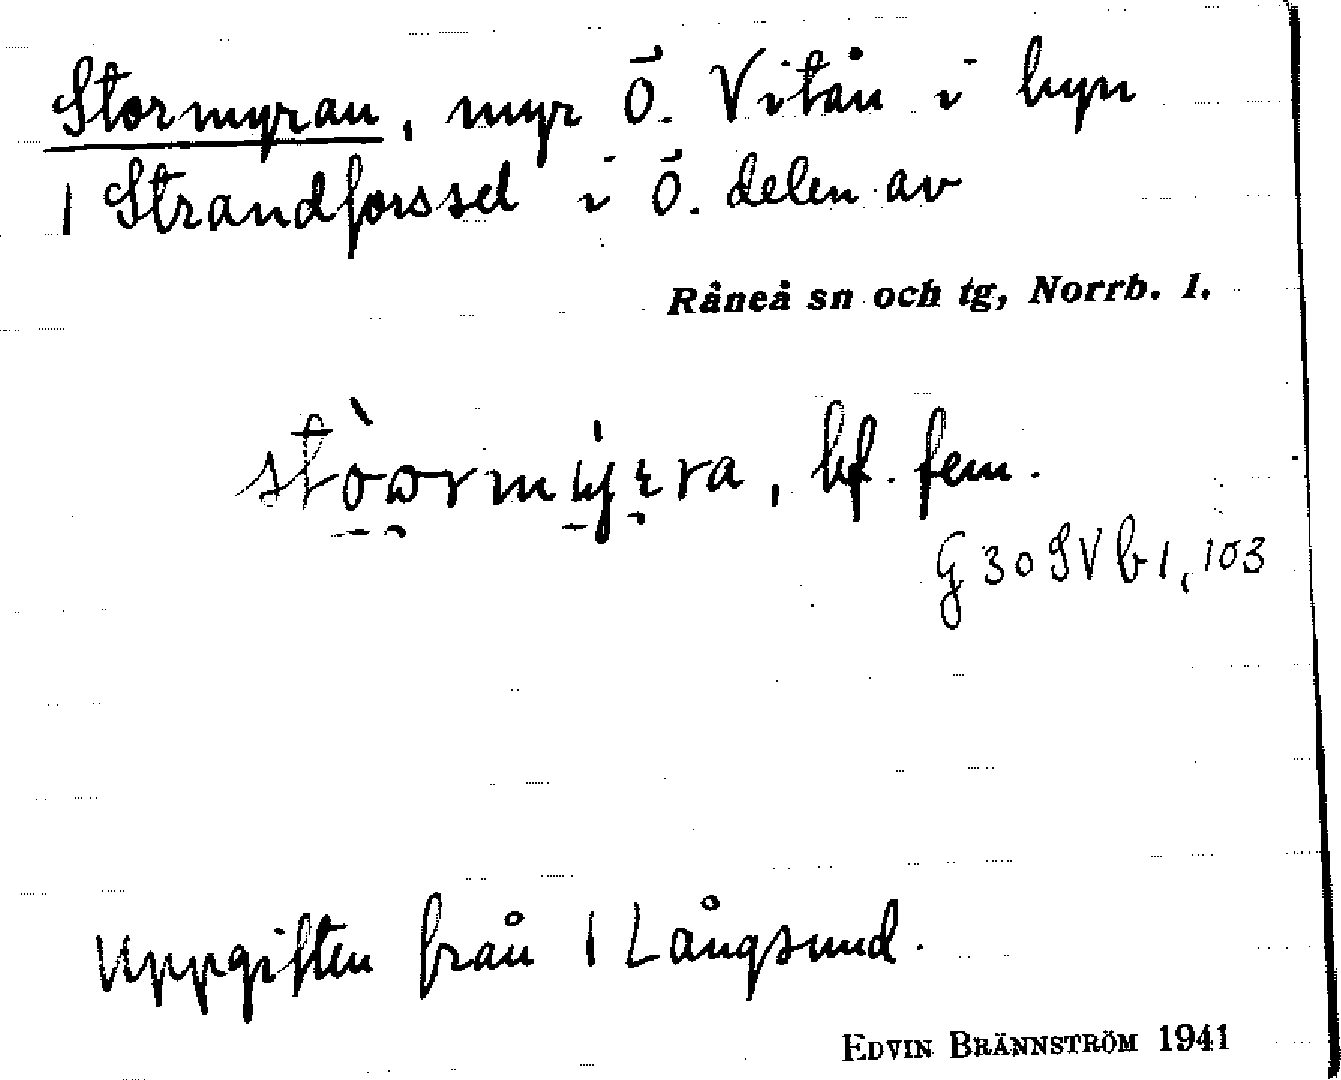 Stormyran, myr Ö. Vitån i byn
1 Strandforssel i Ö. delen av
Råneå sn och tg, Norrb. l.
bf. fem.
G 30 SV b 1, 103
Uppgiften från 1 Långsund.
EDVIN BRÄNNSTRÖM 1941